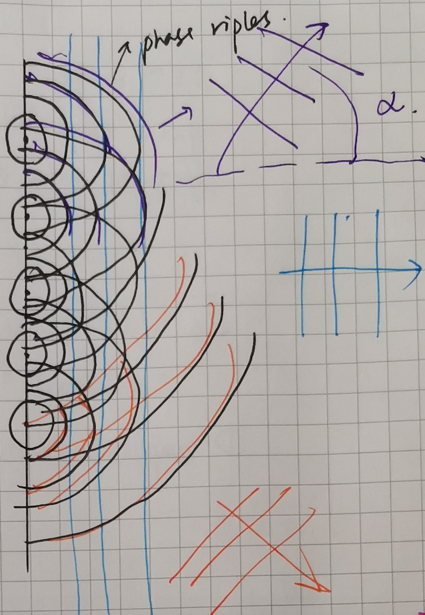 phase riples.
α.